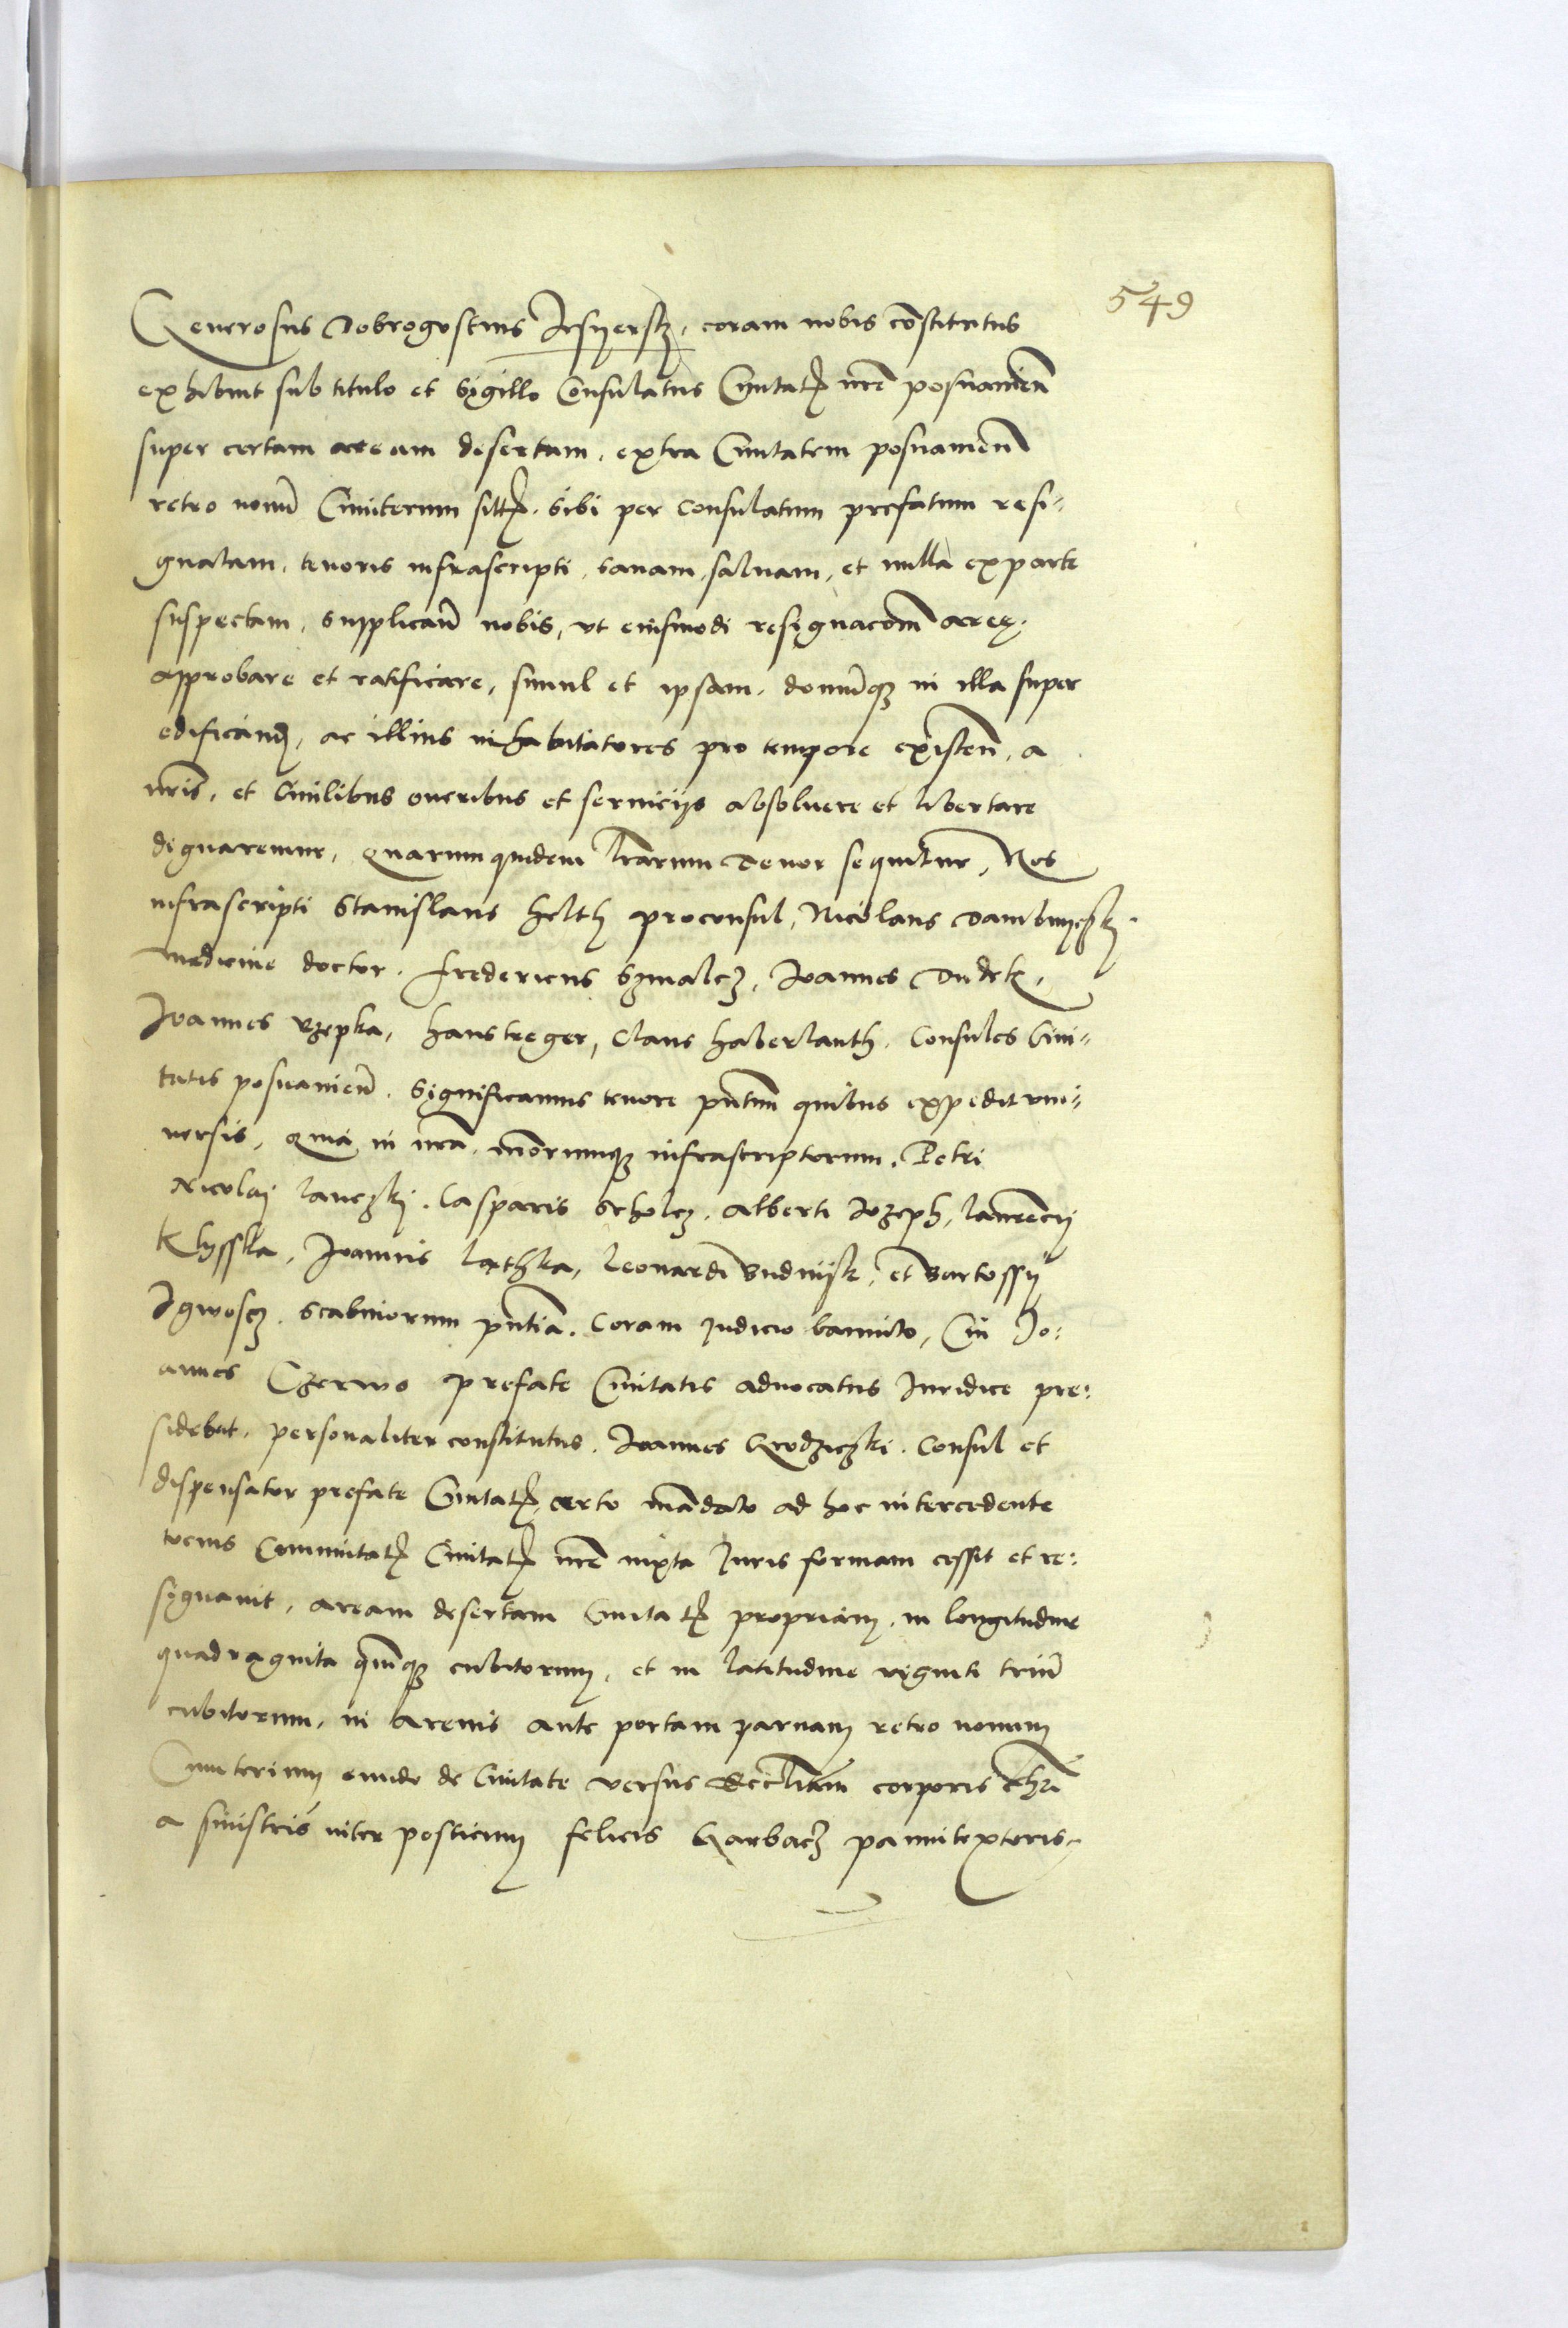 549
Generosus Dobrogostius Jesyersky, coram nobis cōstitutus
exhibuit sub titulo et sigillo Consulatus Ciuitatꝭ nrē posnanien̄
super certam aream desertam, extra Ciuitatem posnanien̄
retro nouū Cimiterum sitꝭ. sibi per consulatum prefatum resi-
gnatam, tenoris infrascripti, sanam, saluam, et nulla ex parte
suspectam, supplicans nobis, vt eiusmodi resignacōm aree,
approbare et ratificare, simul et ipsam, domūqꝫ in illa super
edificand, ac illius inhabitatores pro tempore existen̄, a
nrīs, et Ciuilibus oneribus et seruicijs absoluere et libertare
dignaremur, Quarumquidem lrārum Tenor sequitur, Nos
infrascripti Stanislaus helth proconsul, Nicolaus Dambnyczky
medicine doctor, fredericus Szmalcz, Joannes Dudek,
Joannes Rzepka, hans treger, Claus haberlanth, Consules Ciui-
tatis posnanien̄. Significamus tenore pn̄tium quibus expedit vni-
uersis, Quia in nrā, nrōrumqꝫ infrascriptorum, Petri
Nicolai lanczky, Casparis Scholcz, Alberti Jozeph, laurēcij
Klysska, Joannis lathka, leonardi Budnijk, et Bartossij
Igwoscz, scabinorum pn̄tia, Coram Judicio bannito, Cui Jo-
annes Czerwo prefate Ciuitatis aduocatus Juridice pre-
sidebat, personaliter constitutus, Joannes Grodziczki, Consul et
dispensator prefate Ciuitatꝭ, certo mādato ad hoc intercedente
tocius Communitatꝭ Ciuitatꝭ nrē iuxta Juris formam cessit et re-
signauit, aream desertam Ciuitatꝭ propriam, in longitudine
quadraginta quīqꝫ cubitorum, et in latitudine viginti triū
cubitorum, in arenis ante portam paruam retro nouum
Cimiterium eundo de Ciuitate versus Eccliam corporis Chri
a sinistris inter posticum felicis Garbacz pannitextoris